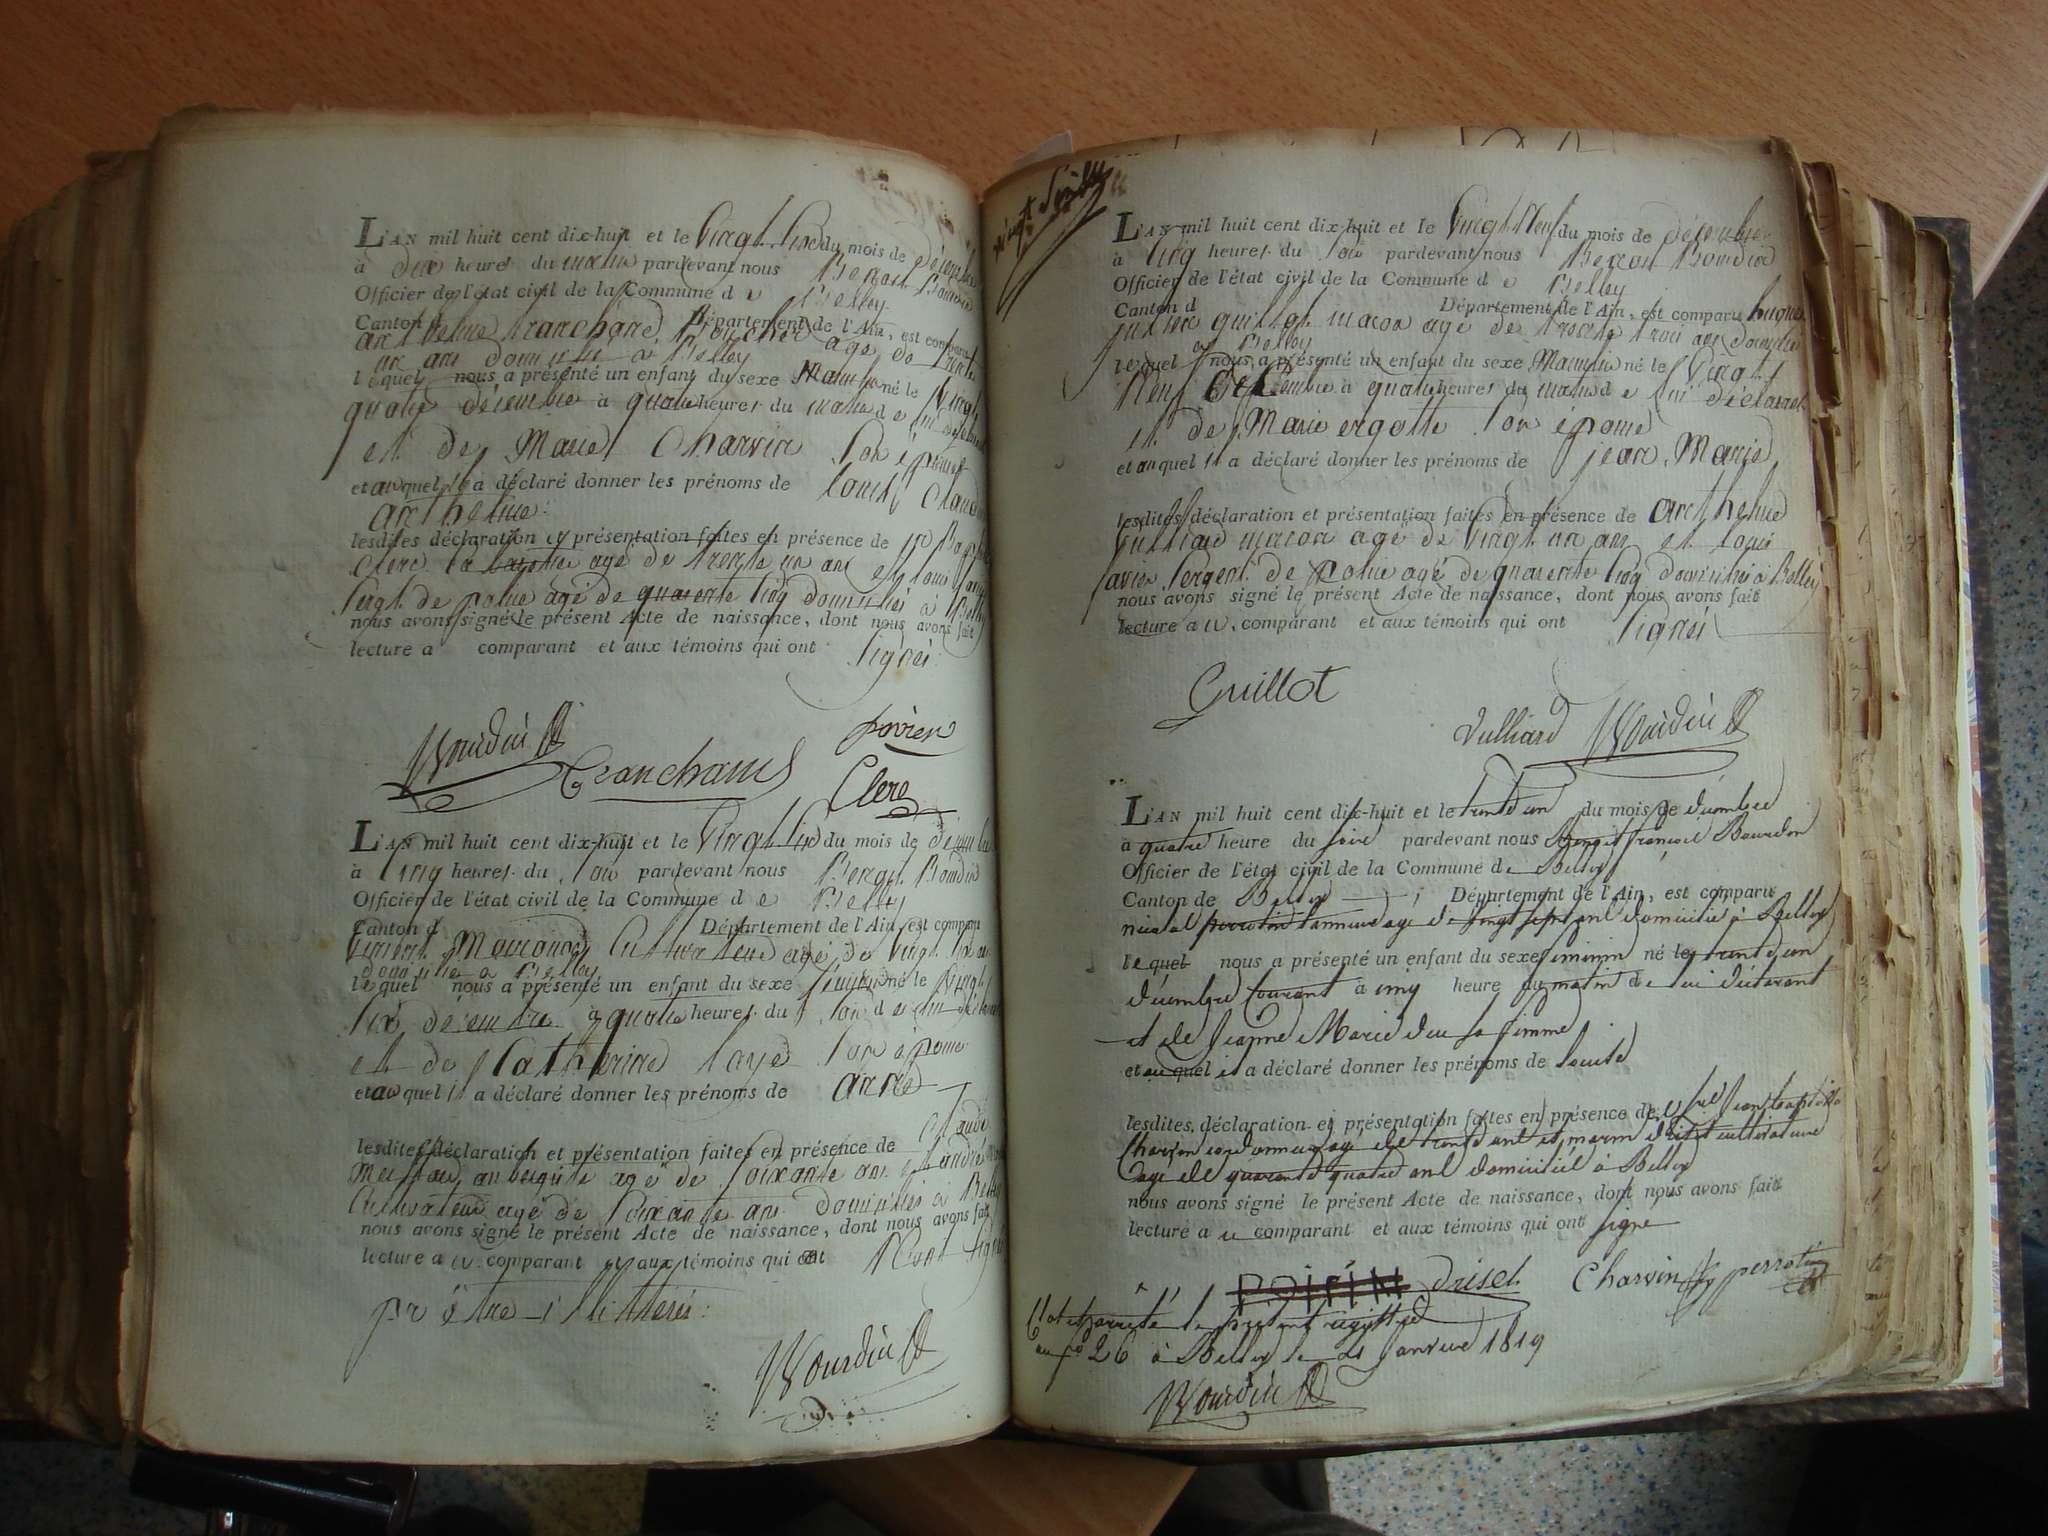 L'AN mil huit cent dix-huit et le Vingt Six du mois de décembre
à dix heures du matin pardevant nous Benoit Bourdin
Officier de l'état civil de la Commune d e Belley
Canton d Département de l'Ain, est comparu
anthelme tranchand, age de trente
un ans domicilié à Belley
lequel nous a présenté un enfant du sexe Masculin né le Vingt
quatre décembre à quatre heures du matin d e lui déclarant
et de Marie Charvin Son épouse
et auquel il a déclaré donner les prénoms de louis Claude
anthelme
lesdites déclaration et présentation faites en présence de
Clerc agé de trente un ans et louis
Sergt. de police agé de quarente cinq domiciliés à Belley
nous avons signé le présent Acte de naissance, dont nous avons fait
lecture a comparant et aux témoins qui ont Signés
Bourdin
Tranchand
Clerc
L'AN mil huit cent dix-huit et le Vingt Six du mois de décembre
à Cinq heures du Soir pardevant nous Benoit Bourdin
Officier de l'état civil de la Commune d e Belley
Canton d Département de l'Ain, est comparu
Cultivateur agé de Vingt
domicilié a Belley
lequel nous a présenté un enfant du sexe féminin né le Vingt
Six décembre à quatre heures du Soir d e lui déclarant
et de Catherine Son épouse
et au quel il a déclaré donner les prénoms de anne
lesdites déclaration et présentation faites en présence de Claude
aubergiste agé de Soixante ans et andré
Cultivateur agé de Soixante ans domiciliés à Belley
nous avons signé le présent Acte de naissance, dont nous avons fait
lecture a u comparant et aux témoins qui ont N'ont Signé
pr être illitérés
Bourdin
L'AN mil huit cent dix-huit et le Vingt Neuf du mois de décembre
à Cinq heures du Soir pardevant nous Benoit Bourdin
Officier de l'état civil de la Commune d e Belley
Canton d Département de l'Ain, est comparu hugues
guillot macon agé de trente trois ans domicilié
à Belley
lequel nous a présenté un enfant du sexe Masculin né le Vingt
Neuf décembre à quatre heures du matin d e lui déclarant
et de Marie ergotte Son épouse
et au quel il a déclaré donner les prénoms de jean Marie
lesdites déclaration et présentation faites en présence de anthelme
Vulliard macon agé de Vingt un ans et louis
Sergent de police agé de quarente cinq domiciliés à Belley
nous avons signé le présent Acte de naissance, dont nous avons fait
lecture a u comparant et aux témoins qui ont Signés
Guillot
Vulliard Bourdin
L'AN mil huit cent dix-huit et le trente un du mois de décembre
à quatre heure du soire pardevant nous Benoit françois Bourdin
Officier de l'état civil de la Commune d e Belley
Canton de Belley Département de l'Ain, est comparu
agé de vingt sept ans domicilié à Belley
lequel nous a présenté un enfant du sexe féminin né le trente un
décembre courant à cinq heure du matin de lui déclarant
et de Jeanne Marie sa femme
et au quel il a déclaré donner les prénoms de
lesdites déclaration et présentation faites en présence de Jean baptiste
Charvin cordonnier agé de trente ans et cultivateur
agé de quarante quatre ans domiciliés à Belley
nous avons signé le présent Acte de naissance, dont nous avons fait
lecture a u comparant et aux témoins qui ont signe
Charvin perrotin
Clot et arreté le present régistre
au fo 26 à Belley le janvier 1819
Bourdin